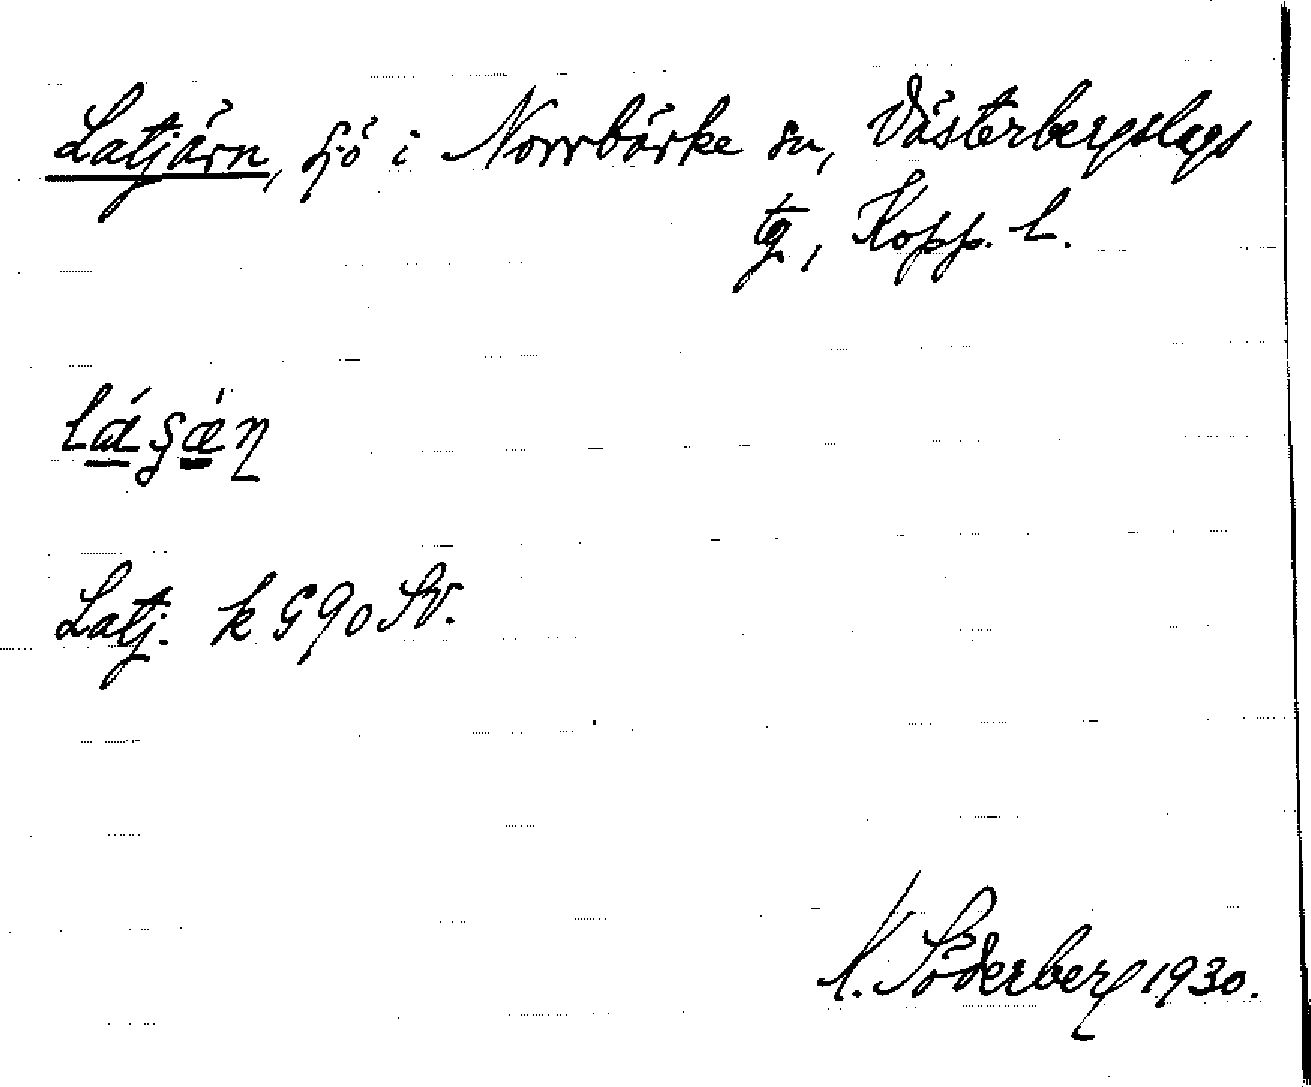 Latjärn, sjö i Norrbärke sn, Västerbergslags
tg, Kopp. l.
Latj. k G 90 SV.
K. Söderberg 1930.